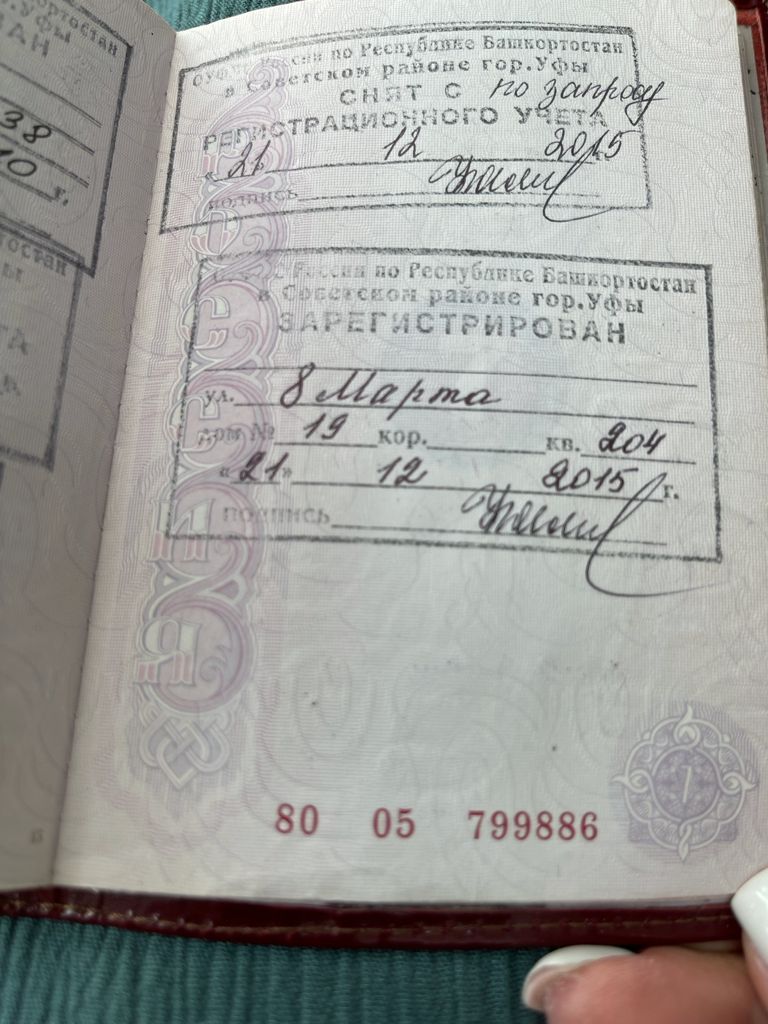 ортостан
г.Уфы
АН
38
10 г.
тостан
ы
ТА
ОУФМС России по Республике Башкортостан
в Советском районе гор.Уфы
СНЯТ С по запросу
РЕГИСТРАЦИОННОГО УЧЕТА
«21» 12 2015
подпись
России по Республике Башкортостан
в Советском районе гор.Уфы
ЗАРЕГИСТРИРОВАН
ул. 8 Марта
дом № 19 кор. кв. 204
«21» 12 2015 г.
подпись
80 05 799886
7